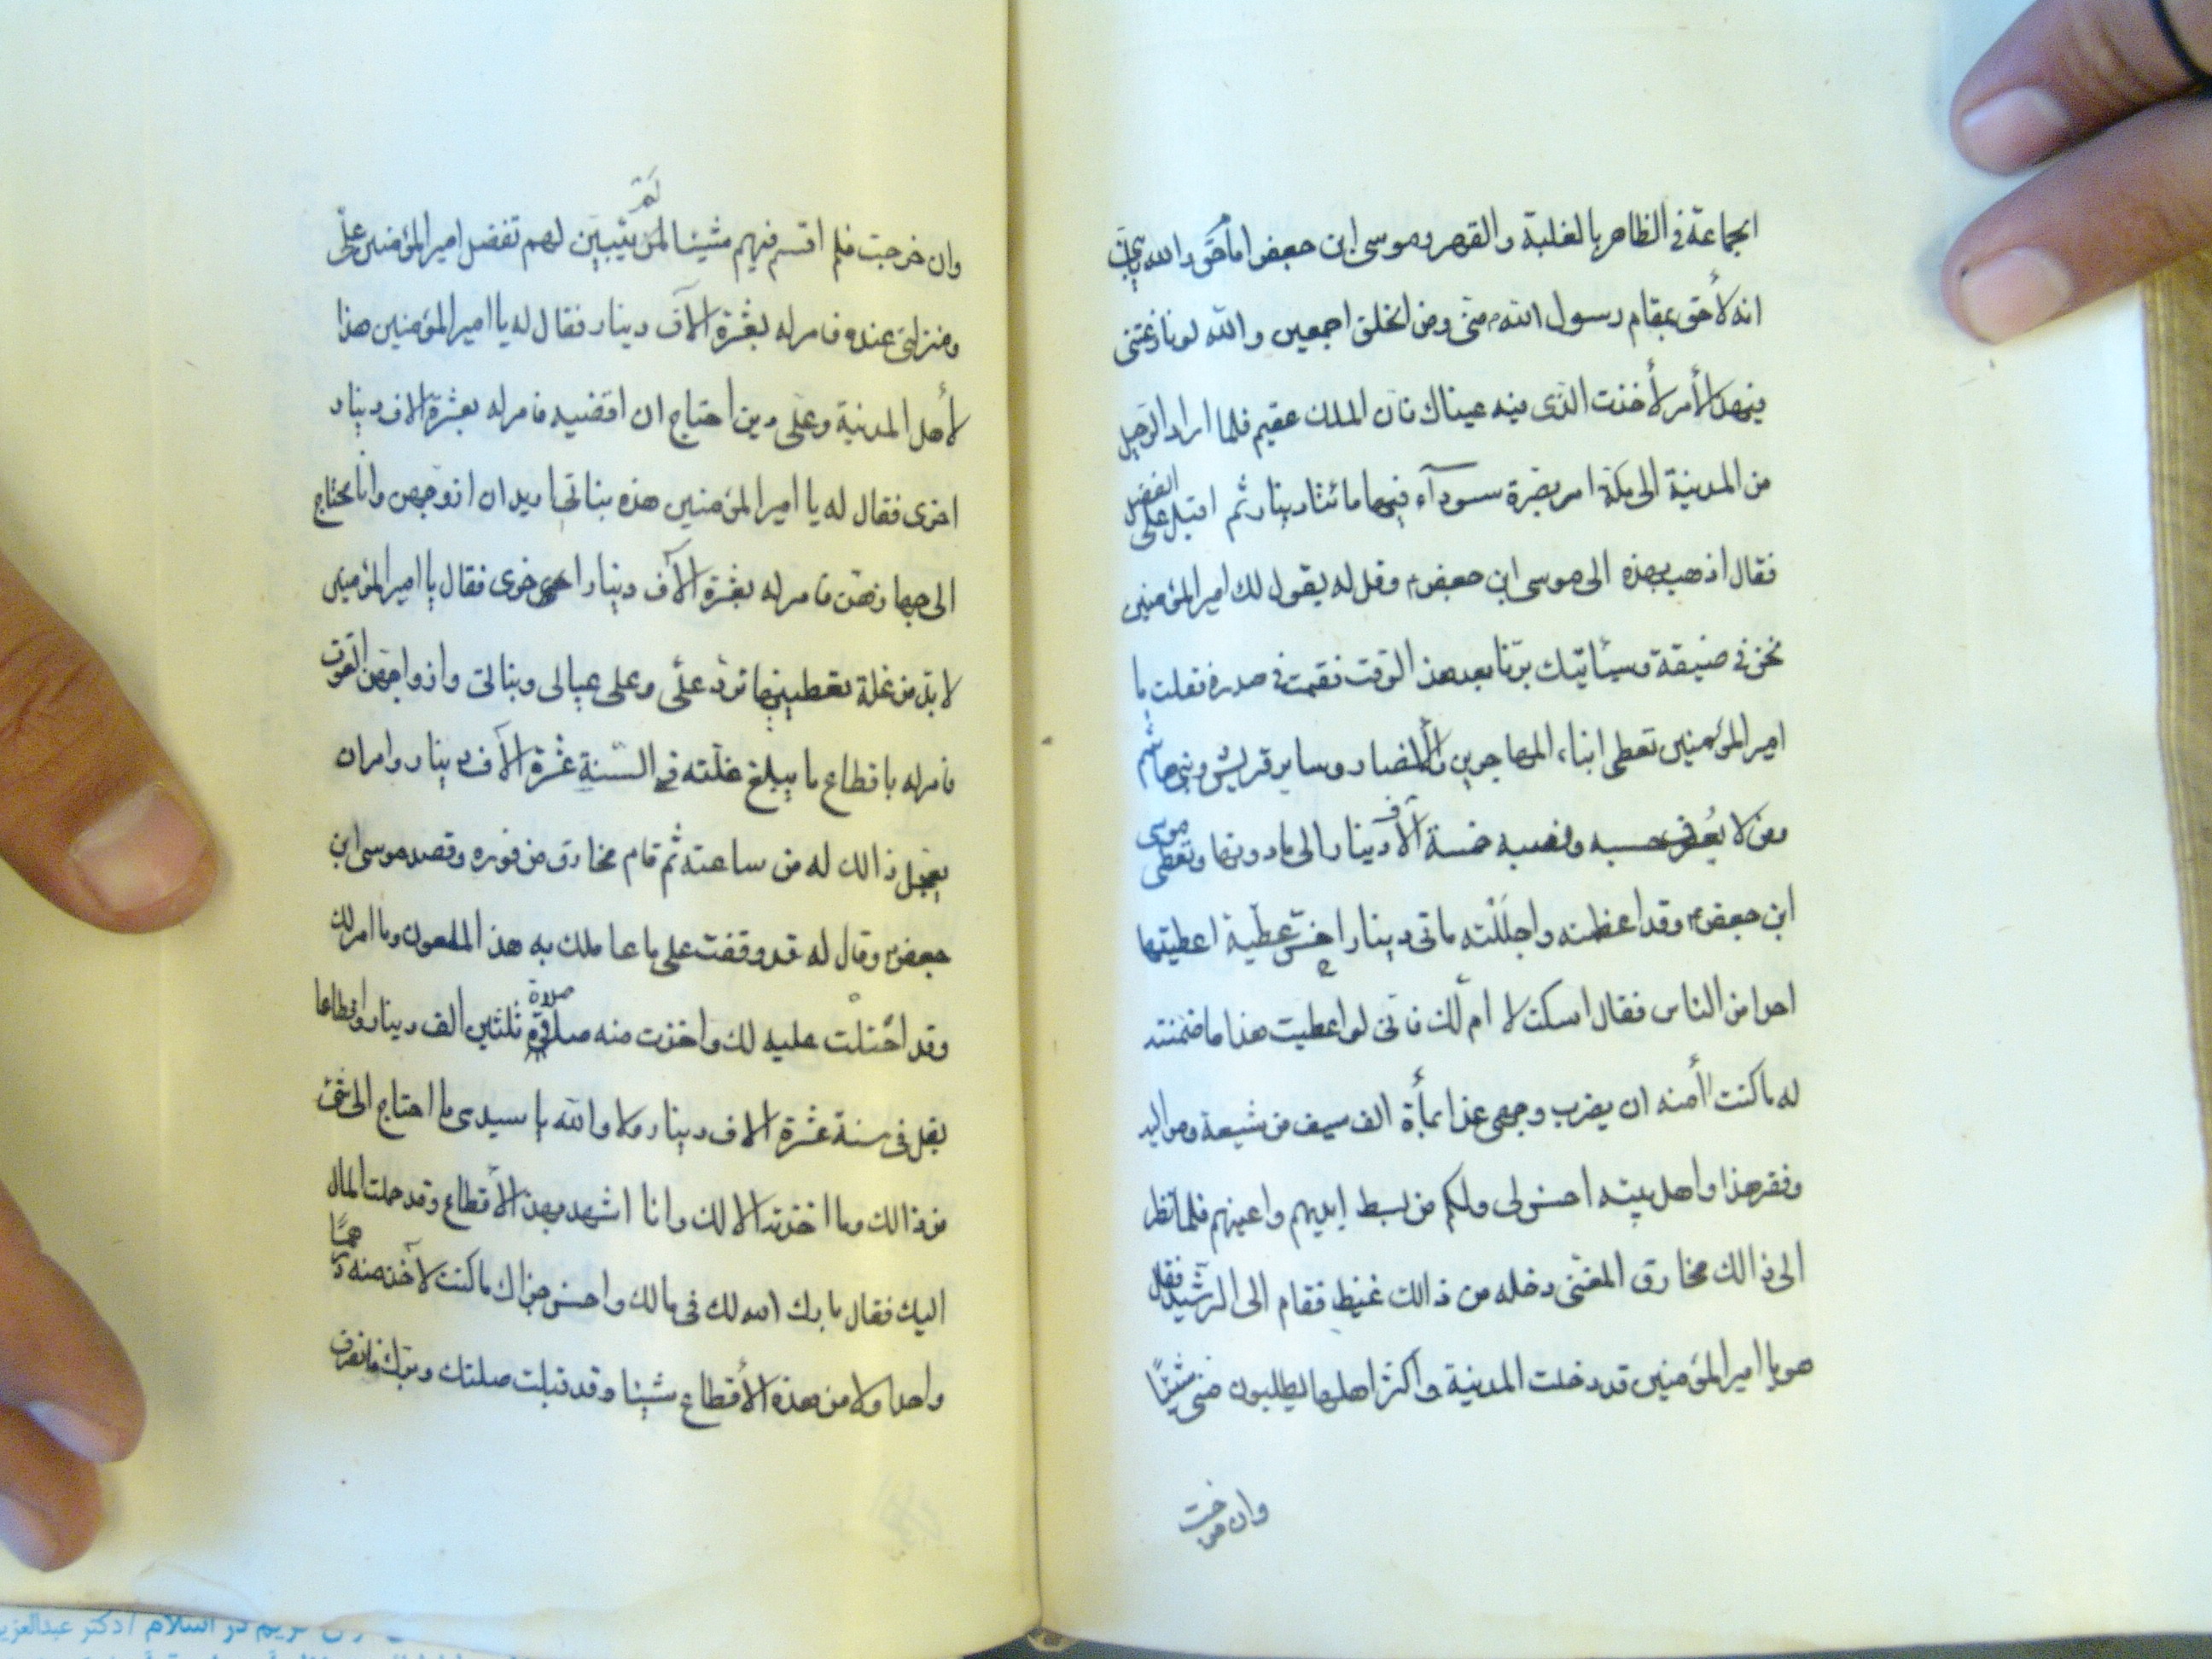 الجماعة في الظاهر بالغلبة والقهر وموسى ابن جعفر امام حق والله يا بني
انه لأحق بمقام رسول الله ص مني ومن الخلق اجمعين والله لو نازعتني
في هذا الأمر لأخذت الذي فيه عيناك فان الملك عقيم فلما اراد الرحيل
من المدينة الى مكة امر بصرة سوداء فيها مائتا دينار ثم اقبل على الفضل
فقال اذهب بهذه الى موسى ابن جعفر وقل له يقول لك امير المؤمنين
نحن في ضيقة وسيأتيك برنا بعد هذا الوقت فقمت في صدره فقلت يا
امير المؤمنين تعطى ابناء المهاجرين والأنصار وساير قريش وبني هاشم
ومن لا يعرف حسبه ونسبه خمسة آلاف دينار الى مادونها وتعطى موسى
ابن جعفر وقد اعظمته واجللته مأتى دينار اخس عطية اعطيتها
احدا من الناس فقال اسكت لا ام لك فانى لو اعطيت هذا ما ضمنته
له ما كنت اأمنه ان يضرب وجهى غدا بمأة الف سيف من شيعة ومواليه
وفقر هذا واهل بيته احسن لى ولكم من بسط ايديهم واعينهم فلما نظر
الى ذالك مخارق المغنى دخله من ذالك غيظ فقام الى الرشيد فقل
هو يا امير المؤمنين قد دخلت المدينة واكثر اهلها يطلبون منى شيئا
وان خرجت
وان خرجت فلم اقسم فيهم شيئا لم يتبين لهم تفضل امير المؤمنين على
ومنزلتى عنده فامر له بعشرة الآف دينار فقال له يا امير المؤمنين هذا
لأهل المدينة وعلى دين احتاج ان اقضيه فامر له بعشرة الاف دينار
اخرى فقال له يا امير المؤمنين هذه بناتى اريد ان ازوجهن وانا محتاج
الى جهازهن فامر له بعشرة الآف دينار اخرى فقال يا امير المؤمنين
لا بد من غلة تعطينيها ترد على وعلى عيالى وبناتى وازواجهن القوت
فامر له باقطاع ما يبلغ غلته في السنة عشرة الآف دينار وامر ان
يعجل ذالك له من ساعته ثم قام مخارق من فوره وقصد موسى ابن
جعفر وقال له قد وقفت على ما عاملك به هذا الملعون وما امر لك
وقد احتلت عليه لك واخذت منه صلاة ثلثين الف دينار واقطاعا
يغل فى سنة عشرة الاف دينار ولا والله يا سيدى ما احتاج الى شئ
من ذالك وما اخذته الا لك وانا اشهد بهذا الأقطاع وقد حملت المال
اليك فقال بارك الله لك فى مالك واحسن جزاك ما كنت لآخذ منه درهما
واحدا ولا من هذه الأقطاع شيئا وقد قبلت صلتك وبرك فانصرف